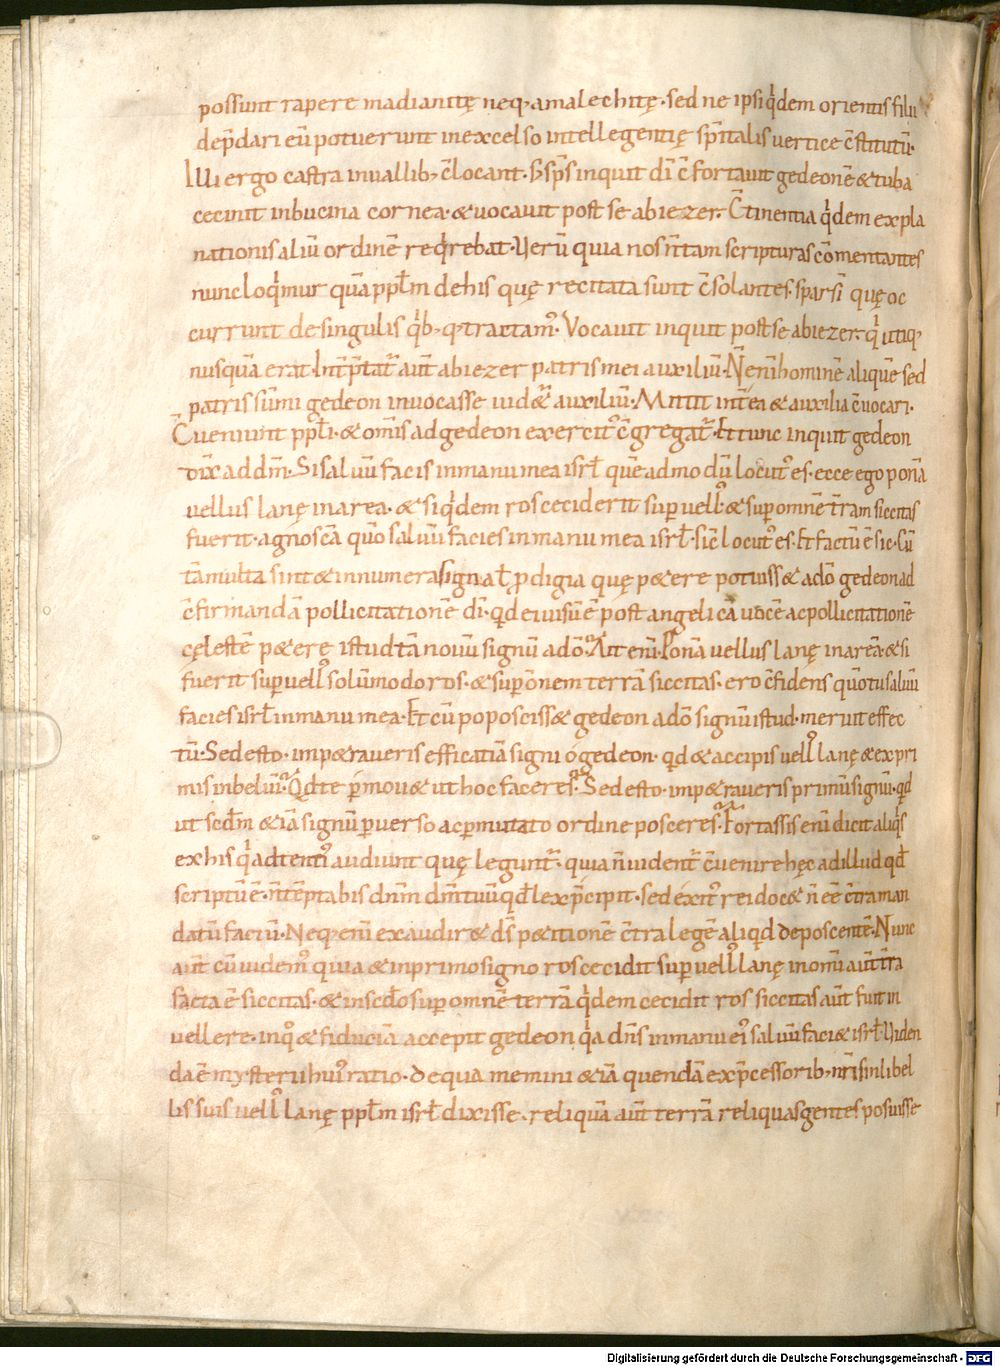 possunt rapere madianitę neq; amalechitę. sed ne ipsi qͥdem orientis filii
dep̄dari eū potuerunt in excelso intellegentię sp̄italis vertice c̄stitutū.
Illi ergo castra in vallib; c̄locant. S; sp̄s inquit dī c̄fortavit gedeonē & tuba
cecinit in bucina cornea. & vocavit post se abiezer. C̄tinentia qͥdem expla
nationis aliū ordinē reqͥrebat. Verū quia nos n̄ tam scripturas cōmentantes
nunc loqͥmur quā pp̄lm de his quę recitata sunt c̄solantes. sparsī quę oc
currunt de singulis qͥb; q; tractamꝰ. Vocavit inquit post se abiezer. qͥ utiq;
nusquā erat. Int̄p̄tat̄ aūt abiezer patris mei auxiliū. N̄ enī hominē aliquē sed
patris sūmi gedeon invocasse vid&̄ auxiliū. Mittit int̄ea & auxilia c̄vocari.
C̄veniunt pp̄li. & om̄is ad gedeon exercitꝰ c̄gregat̄. Et tunc inquit gedeon
dix̄ ad dm̄. Si salvū facis in manu mea isrł quēadmodū locutꝰ es. ecce ego ponā
vellus lanę in area. & si qͥdem ros ceciderit sup̱ vellꝰ & sup̱ omnē t̄ram siccitas
fuerit. agnoscā qūo salvū facies in manu mea isrł. sic̄ locutꝰ es. Et factū ē sic. Cū
tā multa sint & innumera signa ł p̱digia quę p&ere potuiss& a dō gedeon ad
c̄firmandā pollicitationē dī. qd ei visū ē post angelicā vocē ac pollicitationē
cęlestē p&ere istud tā novū signū a dō? Ait enī. Ponā vellus lanę in areā. & si
fuerit sup̱ vellꝰ solūmodo ros. & sup̱ om̄em terrā siccitas. ero c̄fidens quō tu salvū
facies isrł in manu mea. Et cū poposciss& gedeon a dō signū istud. meruit effec
tū. Sed esto. imp&raveris efficatiā signi o gedeon. qd & accipis vellꝰ lanę & expri
mis in belvī? Qͥd te p̱mov& ut hoc faceres? Sed esto. imp&raveris primū signū. qd
ut scd̄m & iā signū p̱verso ac p̱mutato ordine posceres? Fortassis enī dicit aliqͥs
ex his qͥ adtentiꝰ audiunt quę legunt̄. quia n̄ vident̄ c̄venire hęc ad illud qd
scriptū ē. n̄ tēptabis dn̄m dm̄ tuū qd lex p̄cipit. sed exitꝰ rei doc& n̄ eē c̄tra man
datū factū. Neq; enī exaudir& ds̄ p&itionē c̄tra legē aliqͥd deposcentē. Nunc
aūt cū videmꝰ quia & in primo signo ros cecidit sup̱ vellꝰ lanę in omī aūt t̄ra
facta ē siccitas. & in scd̄o sup̱ omnē terrā qͥdem cecidit ros siccitas aūt fuit in
vellere. in qͦ & fiduciā accepit gedeon qͥa dn̄s in manu eiꝰ salvū faci& isrł. Viden
da ē mysterii huiꝰ ratio. de qua memini & iā quendā ex p̄cessorib; nr̄is in libel
lis suis vellꝰ lanę pp̄lm isrł dixisse. reliquā aūt terrā reliquas gentes posuisse
Digitalisierung gefördert durch die Deutsche Forschungsgemeinschaft - DFG